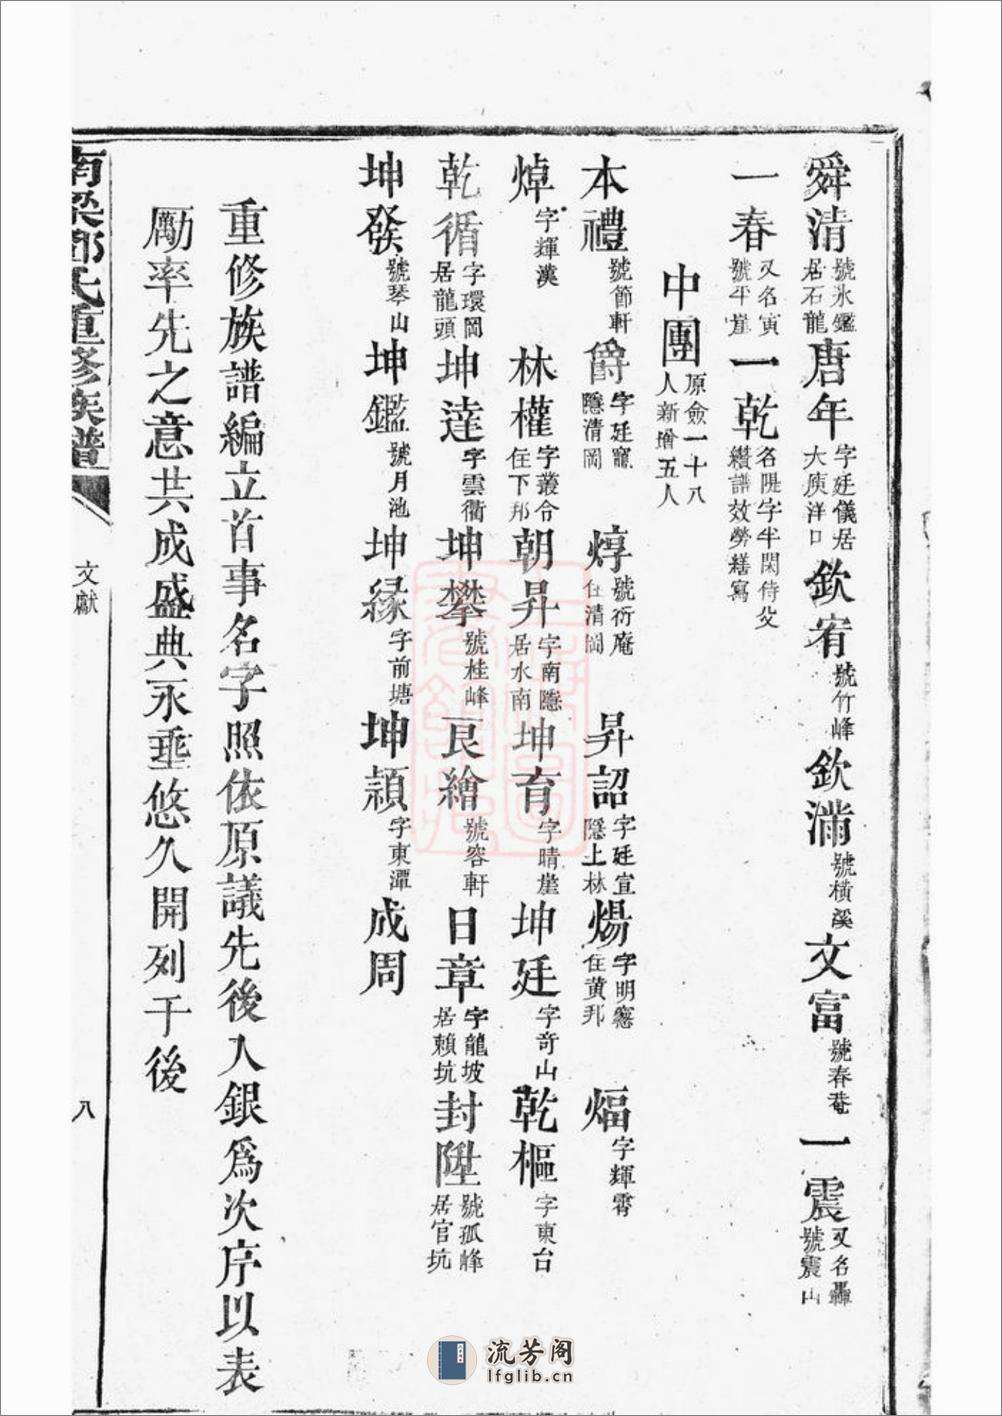 舜清 號氷鑑居石龍 唐年 字廷儀居大庾洋口 欽宥 號竹峰 欽滿 號橫溪 文富 號春菴 一震 又名轟號震山
一春 又名寅號平崖 一乾 名隄字半閑侍父纘譜效勞繕寫
中團 原僉一十八人新增五人
本禮 號節軒 爵 字廷寵隱清岡 焞 號衍庵住清岡 昇詔 字廷宣隱上林 煬 字明窻住黃邦 煏 字輝霄
焯 字輝漢 林權 字叢合住下邦 朝昇 字南隱居水南 坤育 字晴崖 坤廷 字奇山 乾樞 字東台
乾循 字環岡居龍頭 坤達 字雲衢 坤攀 號桂峰 艮繪 號容軒 日章 字龍坡居賴坑 封陞 號孤峰居官坑
坤發 號琴山 坤鑑 號月池 坤緣 字前塘 坤頴 字東潭 成周
重修族譜編立首事名字照依原議先後入銀爲次序以表
勵率先之意共成盛典永垂悠久開列于後
南梁鄧氏重修族譜
文獻
八
流芳阁
lfglib.cn